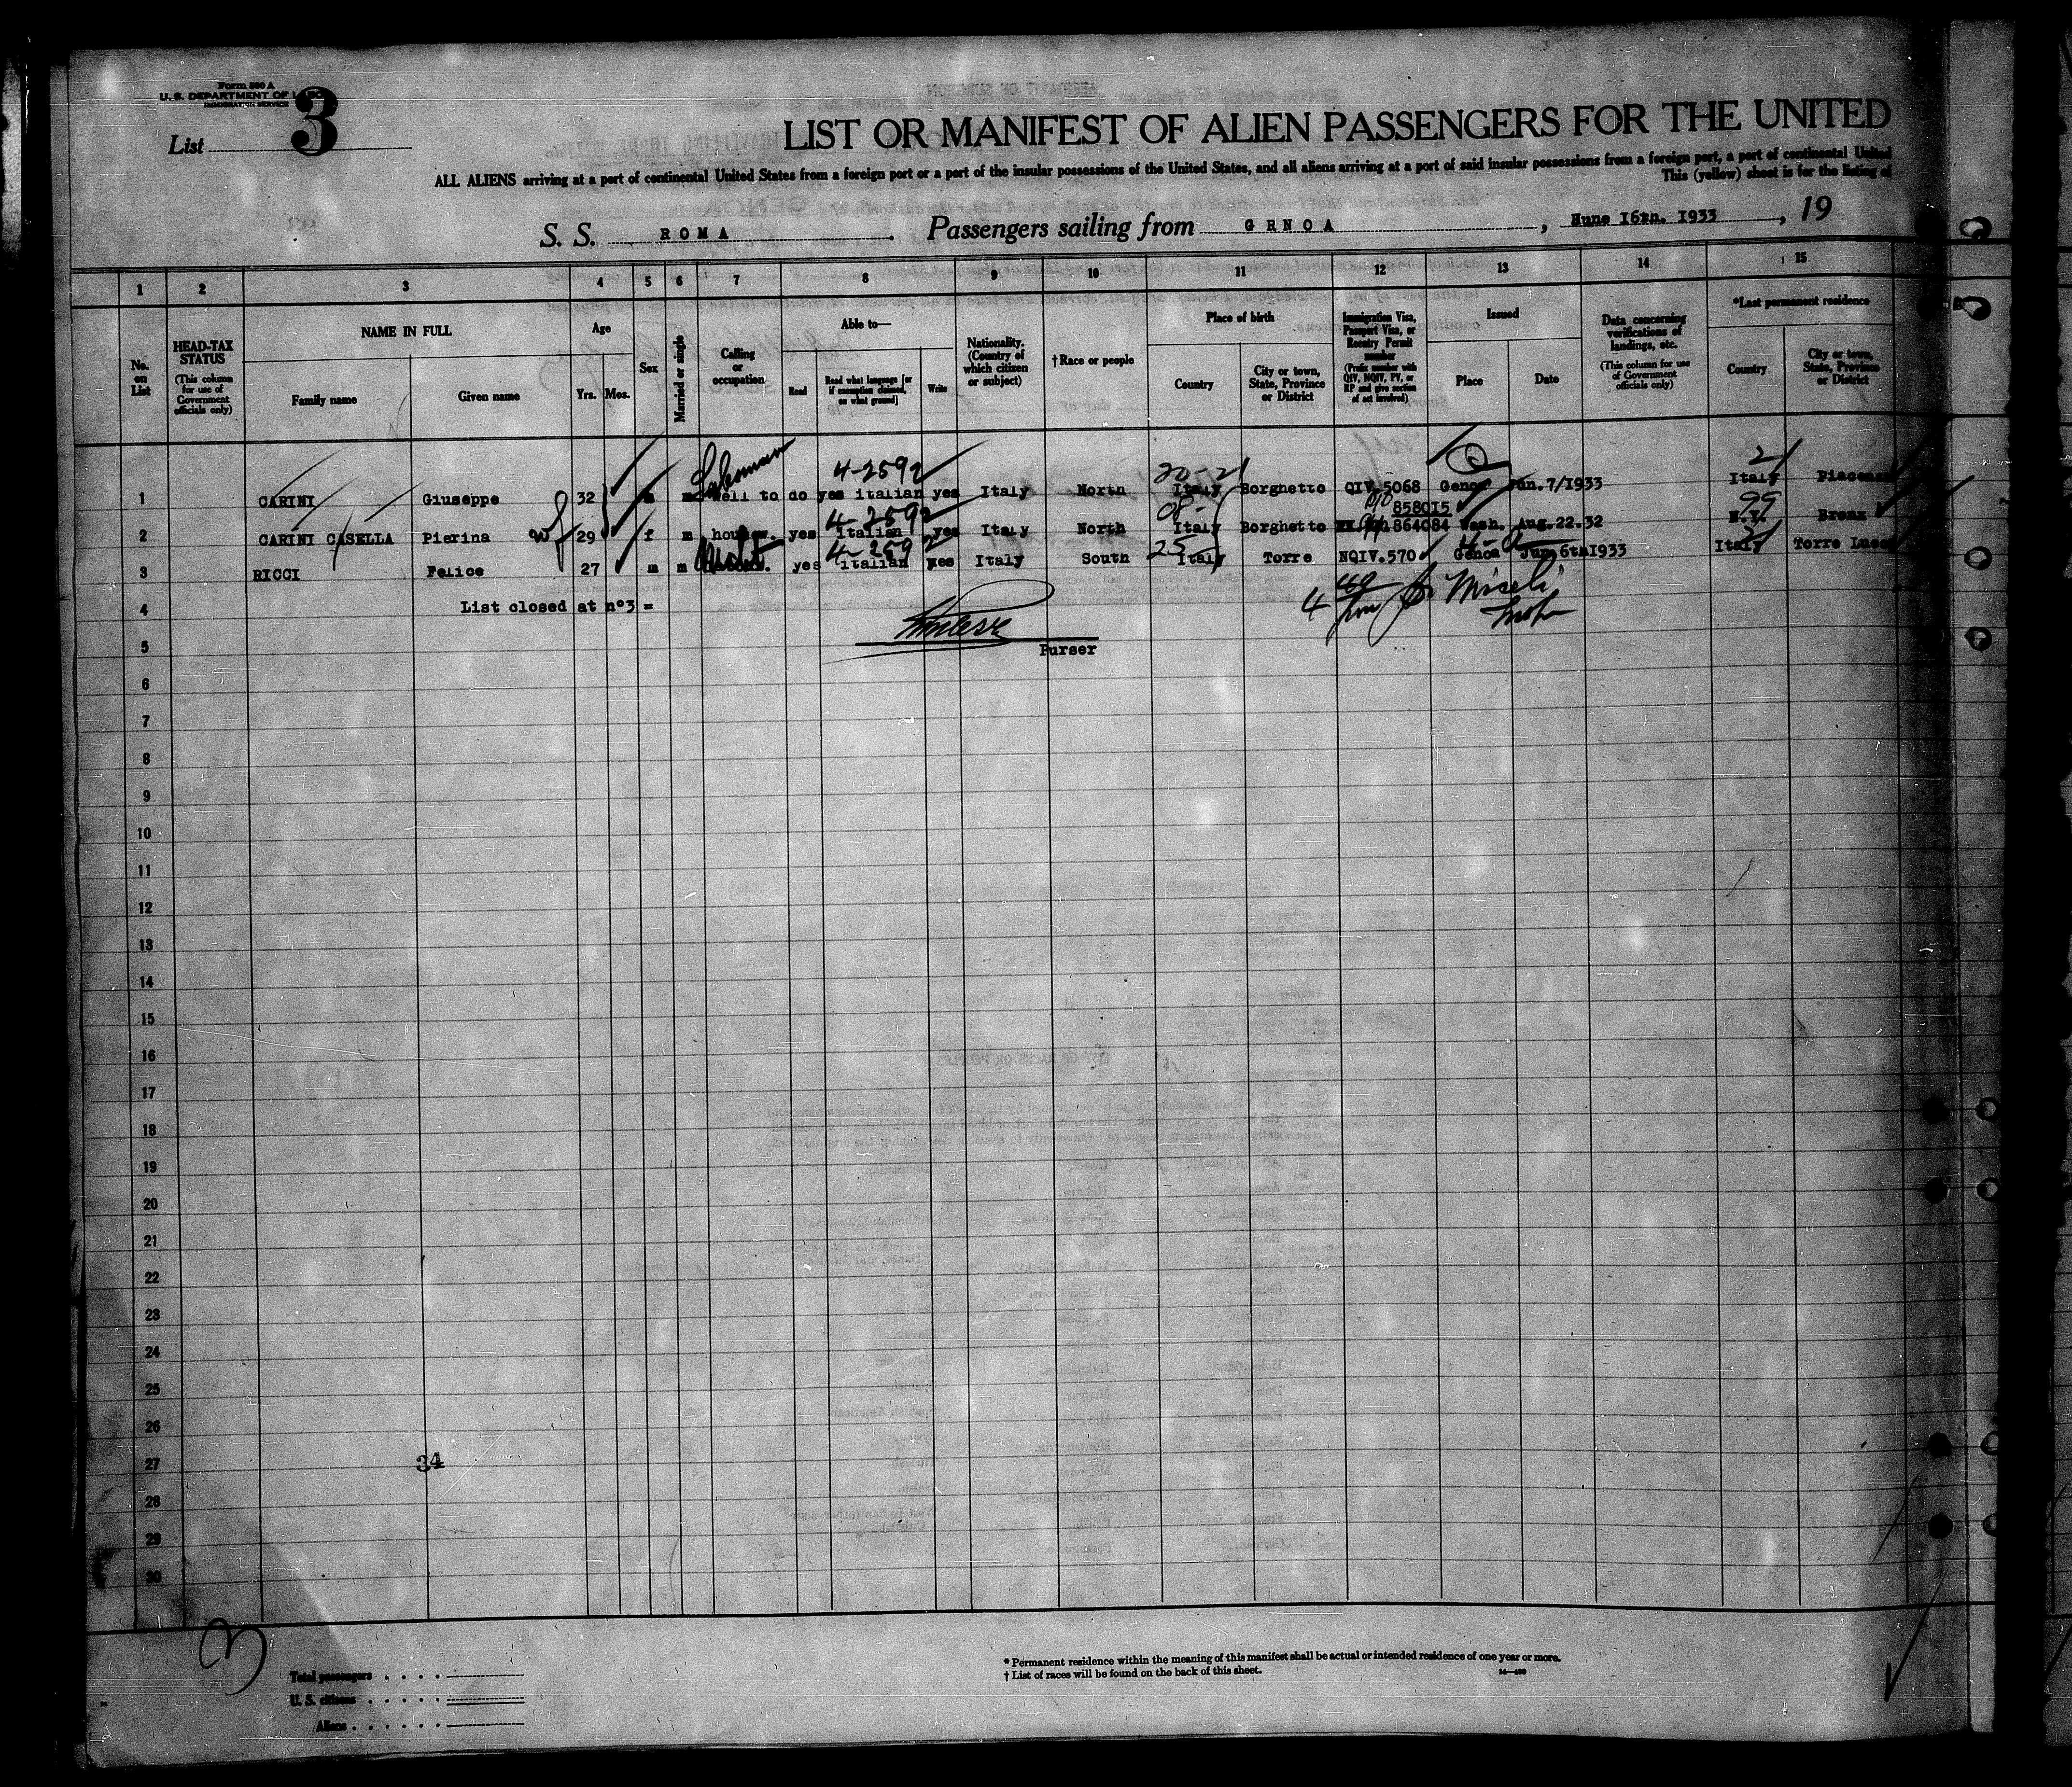 Form 500 A
U. S. DEPARTMENT OF LABOR
IMMIGRATION SERVICE
List 3
LIST OR MANIFEST OF ALIEN PASSENGERS FOR THE UNITED
ALL ALIENS arriving at a port of continental United States from a foreign port or a port of the insular possessions of the United States, and all aliens arriving at a port of said insular possessions from a foreign port, a port of continental United
This (yellow) sheet is for the listing of
S. S. ROMA. Passengers sailing from GENOA, June 16th. 1933, 19
1 2 3 4 5 6 7 8 9 10 11 12 13 14 15
No. on List
HEAD-TAX STATUS
(This column for use of Government officials only)
NAME IN FULL
Family name
Given name
Age
Yrs. Mos.
Sex
Married or single
Calling or occupation
Able to—
Read
Read what language [or if exemption claimed, on what ground]
Write
Nationality. (Country of which citizen or subject)
†Race or people
Place of birth
Country
City or town, State, Province or District
Immigration Visa, Passport Visa, or Reentry Permit number
(Prefix number with QIV, NQIV, PV, or RP and give section of act involved)
Issued
Place
Date
Data concerning verifications of landings, etc.
(This column for use of Government officials only)
*Last permanent residence
Country
City or town, State, Province or District
4-2592 20-2 2
1 CARINI Giuseppe 32 m m well to do yes italian yes Italy North Italy Borghetto QIV.5068 Genoa Jun.7/1933 Italy
4-2592 08- 858015 99
2 CARINI CASELLA Pierina wf 29 f m housew. yes italian yes Italy North Italy Borghetto 864084 Wash. Aug.22.32 N.Y. Bronx
4-259 25
3 RICCI Felice 27 m m yes italian yes Italy South Italy Torre NQIV.570 Genoa Jun.6th1933 Italy Torre
4 List closed at n°3 =
5 Purser
6
7
8
9
10
11
12
13
14
15
16
17
18
19
20
21
22
23
24
25
26
27 34
28
29
30
3
Total passengers
U. S. citizens
Aliens
* Permanent residence within the meaning of this manifest shall be actual or intended residence of one year or more.
† List of races will be found on the back of this sheet.